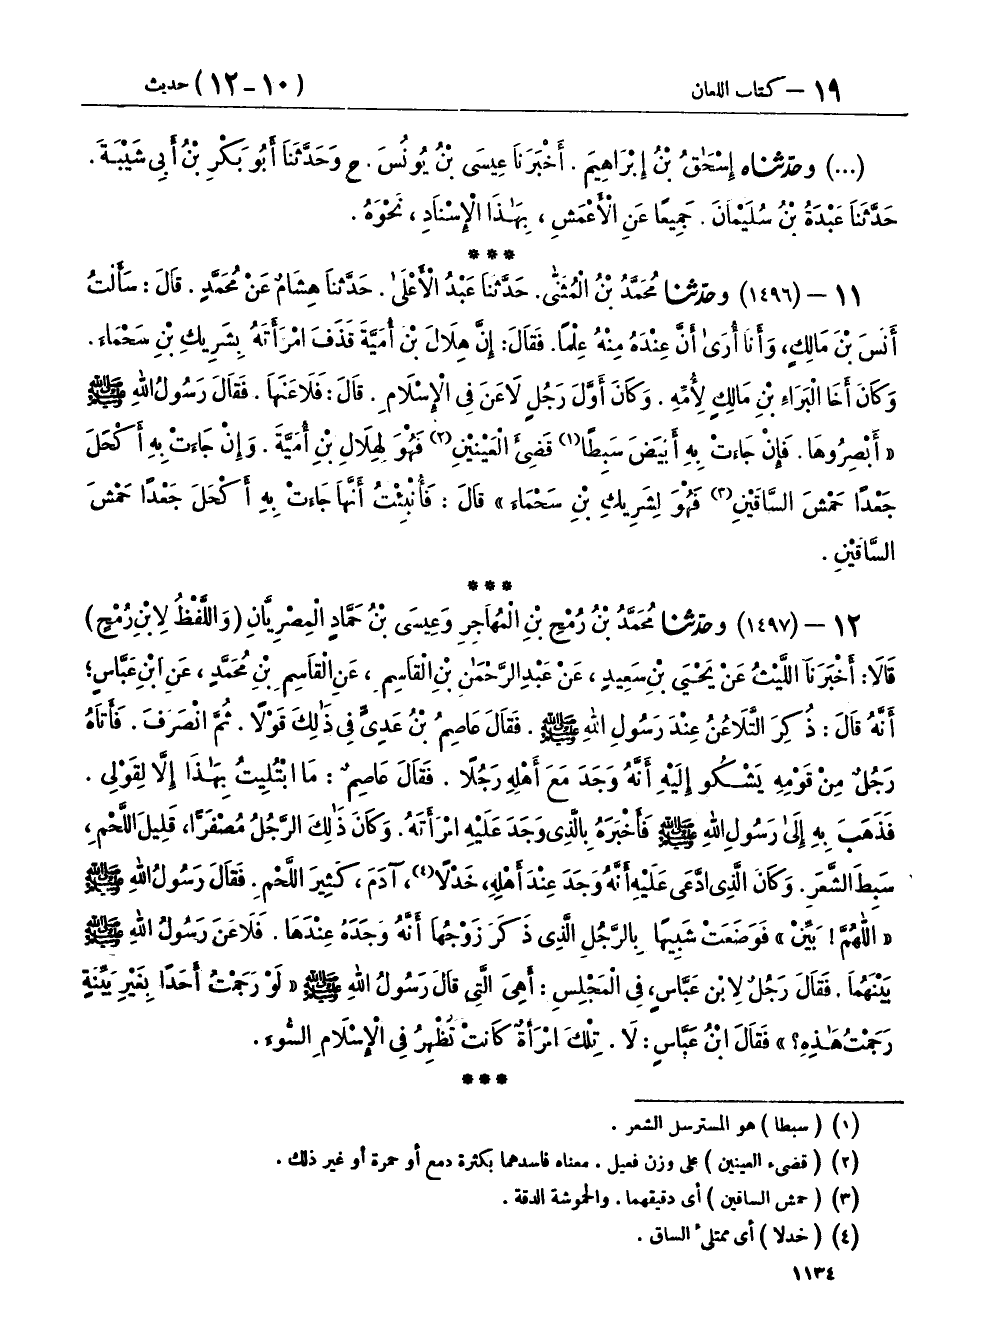 ١٩ – كتاب اللعان (١٠-١٢) حديث
(...) وحَدَّثَنَاه إِسْحَٰقُ بْنُ إِبْرَاهِيمَ . أَخْبَرَنَا عِيسَى بْنُ يُونُسَ . ح وَحَدَّثَنَا أَبُو بَكْرِ بْنُ أَبِي شَيْبَةَ .
حَدَّثَنَا عَبْدَةُ بْنُ سُلَيْمَانَ . جَمِيعًا عَنِ الْأَعْمَشِ ، بِهَٰذَا الْإِسْنَادِ ، نَحْوَهُ .
***
١١ – (١٤٩٦) وحَدَّثَنَا مُحَمَّدُ بْنُ الْمُثَنَّىٰ. حَدَّثَنَا عَبْدُ الْأَعْلَىٰ. حَدَّثَنَا هِشَامٌ عَنْ مُحَمَّدٍ . قَالَ : سَأَلْتُ
أَنَسَ بْنَ مَالِكٍ، وَأَنَا أُرَىٰ أَنَّ عِنْدَهُ مِنْهُ عِلْمًا. فَقَالَ: إِنَّ هِلَالَ بْنَ أُمَيَّةَ قَذَفَ امْرَأَتَهُ بِشَرِيكِ بْنِ سَحْمَاءَ .
وَكَانَ أَخَا الْبَرَاءِ بْنِ مَالِكٍ لِأُمِّهِ . وَكَانَ أَوَّلَ رَجُلٍ لَاعَنَ فِي الْإِسْلَامِ . قَالَ : فَلَاعَنَهَا . فَقَالَ رَسُولُ اللهِ ﷺ
« أَبْصِرُوهَا . فَإِنْ جَاءَتْ بِهِ أَبْيَضَ سَبِطًا(١) قَضِيءَ الْعَيْنَيْنِ(٢) فَهُوَ لِهِلَالِ بْنِ أُمَيَّةَ . وَإِنْ جَاءَتْ بِهِ أَكْحَلَ
جَعْدًا حَمْشَ السَّاقَيْنِ(٣) فَهُوَ لِشَرِيكِ بْنِ سَحْمَاءَ » قَالَ : فَأُنْبِئْتُ أَنَّهَا جَاءَتْ بِهِ أَكْحَلَ جَعْدًا حَمْشَ
السَّاقَيْنِ .
***
١٢ – (١٤٩٧) وحَدَّثَنَا مُحَمَّدُ بْنُ رُمْحِ بْنِ الْمُهَاجِرِ وَعِيسَى بْنُ حَمَّادٍ الْمِصْرِيَّانِ (وَاللَّفْظُ لِابْنِ رُمْحٍ)
قَالَا: أَخْبَرَنَا اللَّيْثُ عَنْ يَحْيَى بْنِ سَعِيدٍ ، عَنْ عَبْدِ الرَّحْمَٰنِ بْنِ الْقَاسِمِ ، عَنِ الْقَاسِمِ بْنِ مُحَمَّدٍ ، عَنِ ابْنِ عَبَّاسٍ؛
أَنَّهُ قَالَ : ذُكِرَ التَّلَاعُنُ عِنْدَ رَسُولِ اللهِ ﷺ . فَقَالَ عَاصِمُ بْنُ عَدِيٍّ فِي ذَٰلِكَ قَوْلًا . ثُمَّ انْصَرَفَ . فَأَتَاهُ
رَجُلٌ مِنْ قَوْمِهِ يَشْكُو إِلَيْهِ أَنَّهُ وَجَدَ مَعَ أَهْلِهِ رَجُلًا . فَقَالَ عَاصِمٌ : مَا ابْتُلِيتُ بِهَٰذَا إِلَّا لِقَوْلِي .
فَذَهَبَ بِهِ إِلَىٰ رَسُولِ اللهِ ﷺ فَأَخْبَرَهُ بِالَّذِي وَجَدَ عَلَيْهِ امْرَأَتَهُ. وَكَانَ ذَٰلِكَ الرَّجُلُ مُصْفَرًّا، قَلِيلَ اللَّحْمِ،
سَبِطَ الشَّعَرِ . وَكَانَ الَّذِي ادَّعَىٰ عَلَيْهِ أَنَّهُ وَجَدَ عِنْدَ أَهْلِهِ، خَدْلًا(٤)، آدَمَ ، كَثِيرَ اللَّحْمِ . فَقَالَ رَسُولُ اللهِ ﷺ
« اللَّهُمَّ ! بَيِّنْ » فَوَضَعَتْ شَبِيهًا بِالرَّجُلِ الَّذِي ذَكَرَ زَوْجُهَا أَنَّهُ وَجَدَهُ عِنْدَهَا . فَلَاعَنَ رَسُولُ اللهِ ﷺ
بَيْنَهُمَا . فَقَالَ رَجُلٌ لِابْنِ عَبَّاسٍ، فِي الْمَجْلِسِ : أَهِيَ الَّتِي قَالَ رَسُولُ اللهِ ﷺ « لَوْ رَجَمْتُ أَحَدًا بِغَيْرِ بَيِّنَةٍ
رَجَمْتُ هَٰذِهِ؟ » فَقَالَ ابْنُ عَبَّاسٍ : لَا . تِلْكَ امْرَأَةٌ كَانَتْ تُظْهِرُ فِي الْإِسْلَامِ السُّوءَ .
***
(١) ( سبطا ) هو المسترسل الشعر .
(٢) ( قضىء العينين ) على وزن فعيل . معناه فاسدهما بكثرة دمع أو حمرة أو غير ذلك .
(٣) ( حمش الساقين ) أى دقيقهما . والحموشة الدقة .
(٤) ( خدلا ) أى ممتلئ الساق .
١١٣٤